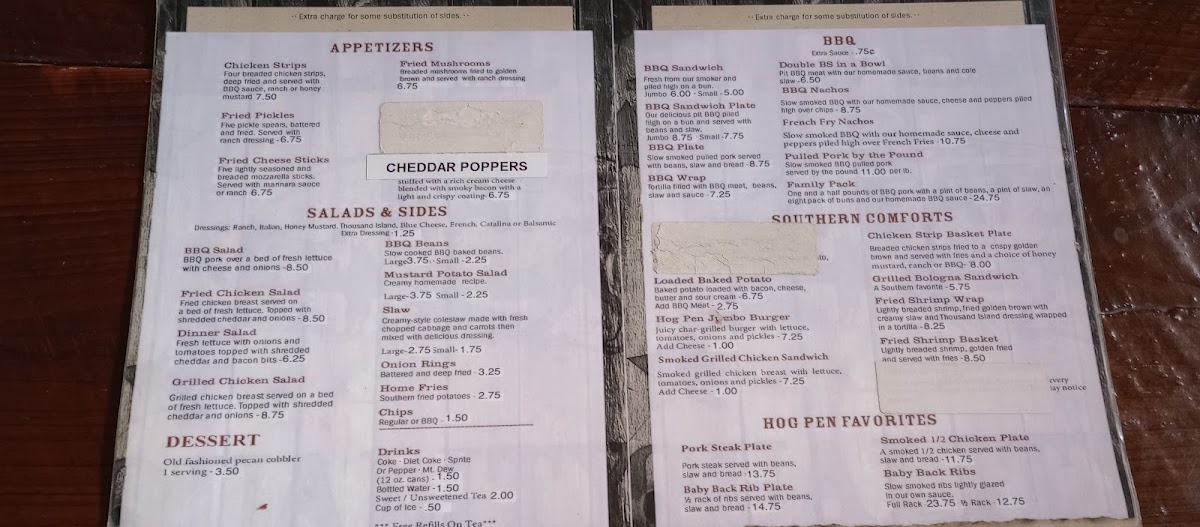 ·· Extra charge for some substitution of sides. ··
APPETIZERS
Chicken Strips
Four breaded chicken strips,
deep fried and served with
BBQ sauce, ranch or honey
mustard 7.50
Fried Pickles
Five pickle spears, battered
and fried. Served with
ranch dressing - 6.75
Fried Cheese Sticks
Five lightly seasoned and
breaded mozzarella sticks.
Served with marinara sauce
or ranch 6.75
Fried Mushrooms
Breaded mushrooms fried to golden
brown and served with ranch dressing
6.75
CHEDDAR POPPERS
stuffed with a rich cream cheese
blended with smoky bacon with a
light and crispy coating- 6.75
SALADS & SIDES
Dressings: Ranch, Italian, Honey Mustard, Thousand Island, Blue Cheese, French, Catalina or Balsamic
Extra Dressing - 1.25
BBQ Salad
BBQ pork over a bed of fresh lettuce
with cheese and onions - 8.50
Fried Chicken Salad
Fried chicken breast served on
a bed of fresh lettuce. Topped with
shredded cheddar and onions - 8.50
Dinner Salad
Fresh lettuce with onions and
tomatoes topped with shredded
cheddar and bacon bits - 6.25
Grilled Chicken Salad
Grilled chicken breast served on a bed
of fresh lettuce. Topped with shredded
cheddar and onions - 8.75
DESSERT
Old fashioned pecan cobbler
1 serving - 3.50
BBQ Beans
Slow cooked BBQ baked beans.
Large 3.75 · Small - 2.25
Mustard Potato Salad
Creamy homemade recipe.
Large- 3.75 Small - 2.25
Slaw
Creamy-style coleslaw made with fresh
chopped cabbage and carrots then
mixed with delicious dressing.
Large- 2.75 Small- 1.75
Onion Rings
Battered and deep fried - 3.25
Home Fries
Southern fried potatoes - 2.75
Chips
Regular or BBQ - 1.50
Drinks
Coke · Diet Coke · Sprite
Dr Pepper · Mt. Dew
(12 oz. cans) - 1.50
Bottled Water - 1.50
Sweet / Unsweetened Tea 2.00
Cup of Ice - .50
*** Free Refills On Tea***
·· Extra charge for some substitution of sides. ··
BBQ
Extra Sauce - .75¢
BBQ Sandwich
Fresh from our smoker and
piled high on a bun.
Jumbo 6.00 · Small - 5.00
BBQ Sandwich Plate
Our delicious pit BBQ piled
high on a bun and served with
beans and slaw.
Jumbo 8.75 · Small - 7.75
BBQ Plate
Slow smoked pulled pork served
with beans, slaw and bread - 8.75
BBQ Wrap
Tortilla filled with BBQ meat, beans,
slaw and sauce - 7.25
Double BS in a Bowl
Pit BBQ meat with our homemade sauce, beans and cole
slaw - 6.50
BBQ Nachos
Slow smoked BBQ with our homemade sauce, cheese and peppers piled
high over chips - 8.75
French Fry Nachos
Slow smoked BBQ with our homemade sauce, cheese and
peppers piled high over French Fries - 10.75
Pulled Pork by the Pound
Slow smoked BBQ pulled pork
served by the pound 11.00 per lb.
Family Pack
One and a half pounds of BBQ pork with a pint of beans, a pint of slaw, an
eight pack of buns and our homemade BBQ sauce - 24.75
SOUTHERN COMFORTS
Loaded Baked Potato
Baked potato loaded with bacon, cheese,
butter and sour cream - 6.75
Add BBQ Meat - 2.75
Hog Pen Jumbo Burger
Juicy char-grilled burger with lettuce,
tomatoes, onions and pickles - 7.25
Add Cheese - 1.00
Smoked Grilled Chicken Sandwich
Smoked grilled chicken breast with lettuce,
tomatoes, onions and pickles - 7.25
Add Cheese - 1.00
Chicken Strip Basket Plate
Breaded chicken strips fried to a crispy golden
brown and served with fries and a choice of honey
mustard, ranch or BBQ- 8.00
Grilled Bologna Sandwich
A Southern favorite - 5.75
Fried Shrimp Wrap
Lightly breaded shrimp, fried golden brown with
creamy slaw and Thousand Island dressing wrapped
in a tortilla - 8.25
Fried Shrimp Basket
Lightly breaded shrimp, golden fried
and served with fries - 8.50
every
notice
HOG PEN FAVORITES
Pork Steak Plate
Pork steak served with beans,
slaw and bread - 13.75
Baby Back Rib Plate
½ rack of ribs served with beans,
slaw and bread - 14.75
Smoked 1/2 Chicken Plate
A smoked 1/2 chicken served with beans,
slaw and bread - 11.75
Baby Back Ribs
Slow smoked ribs lightly glazed
in our own sauce.
Full Rack - 23.75 ½ Rack - 12.75